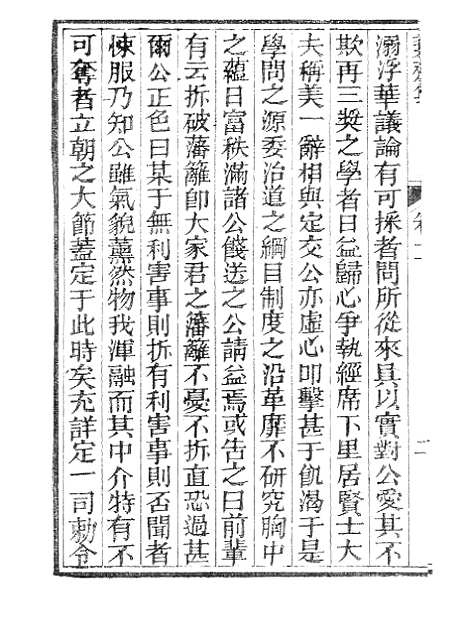 溺浮華議論有可採者問所從來具以實對公愛其不
欺再三奬之學者日益歸心爭執經席下里居賢士大
夫稱美一辭相與定交公亦虛心叩擊甚于飢渴于是
學問之源委治道之綱目制度之沿革靡不硏究胸中
之蘊日富秩滿諸公餞送之公請益焉或告之曰前輩
有云拆破藩籬卽大家君之藩籬不憂不拆直恐過甚
爾公正色曰某于無利害事則拆有利害事則否聞者
悚服乃知公雖氣貌薰然物我渾融而其中介特有不
可奪者立朝之大節蓋定于此時矣充詳定一司勅令